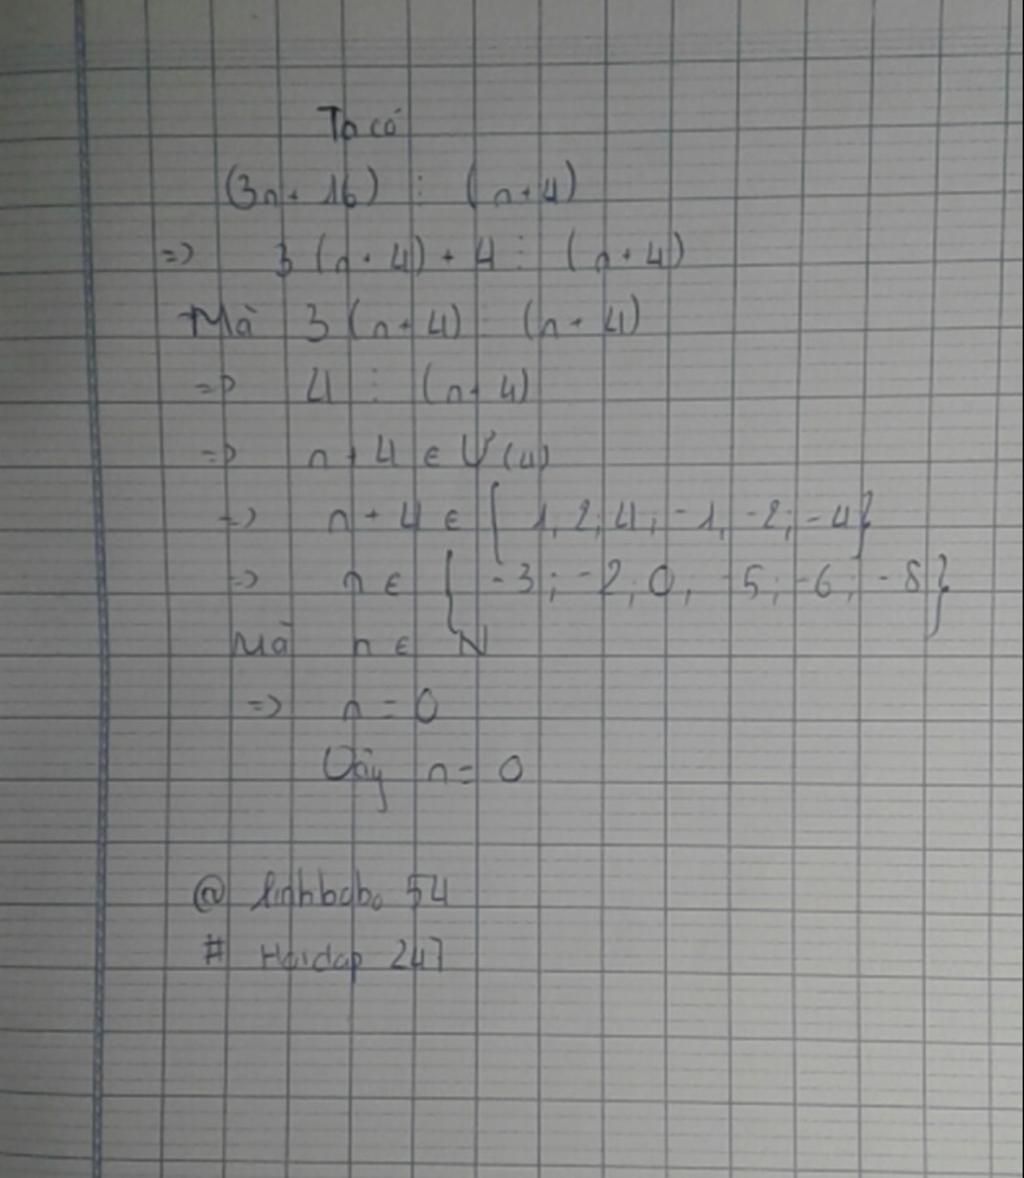 Ta có
(3n + 16) ⋮ (n + 4)
=> 3 (n + 4) + 4 ⋮ (n + 4)
Mà 3 (n + 4) ⋮ (n + 4)
=> 4 ⋮ (n + 4)
=> n + 4 ∈ Ư (4)
=> n + 4 ∈ { 1, 2, 4, -1, -2, -4}
=> n ∈ { -3; -2, 0, -5; -6; -8}
Mà n ∈ N
=> n = 0
Vậy n = 0
@ linhbobo 54
# Hoidap 247